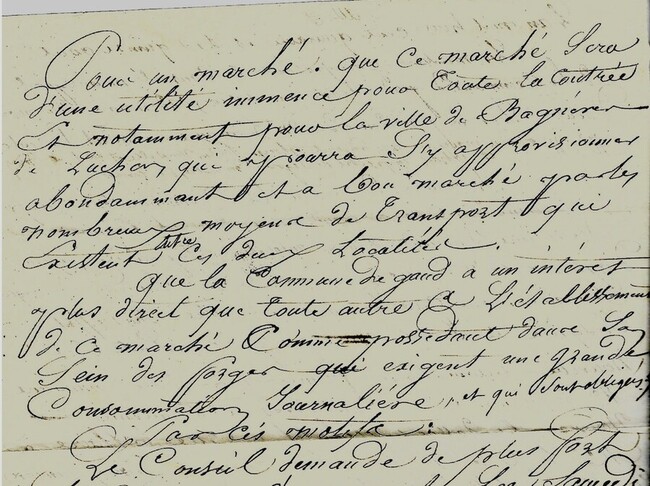 Pour un marché. que ce marché Sera
d'une utilité immence pour toute la Contrée
Et notamment pour la ville de Bagnères
de Luchon, qui pourra S'y approvisionner
abondammant et a bon marché par les
nombreux moyens de transport qui
Existent entre Ces deux Localités.
que la Commune de gaud a un intérêt
plus direct que toute autre a L'établissement
de ce marché Comme possedant dans Son
Sein des forges que exigent une grande
Consommation Journalière, et qui Sont obligés
Par Ces motifs:
Le Conseil demande de plus fort
Samedi